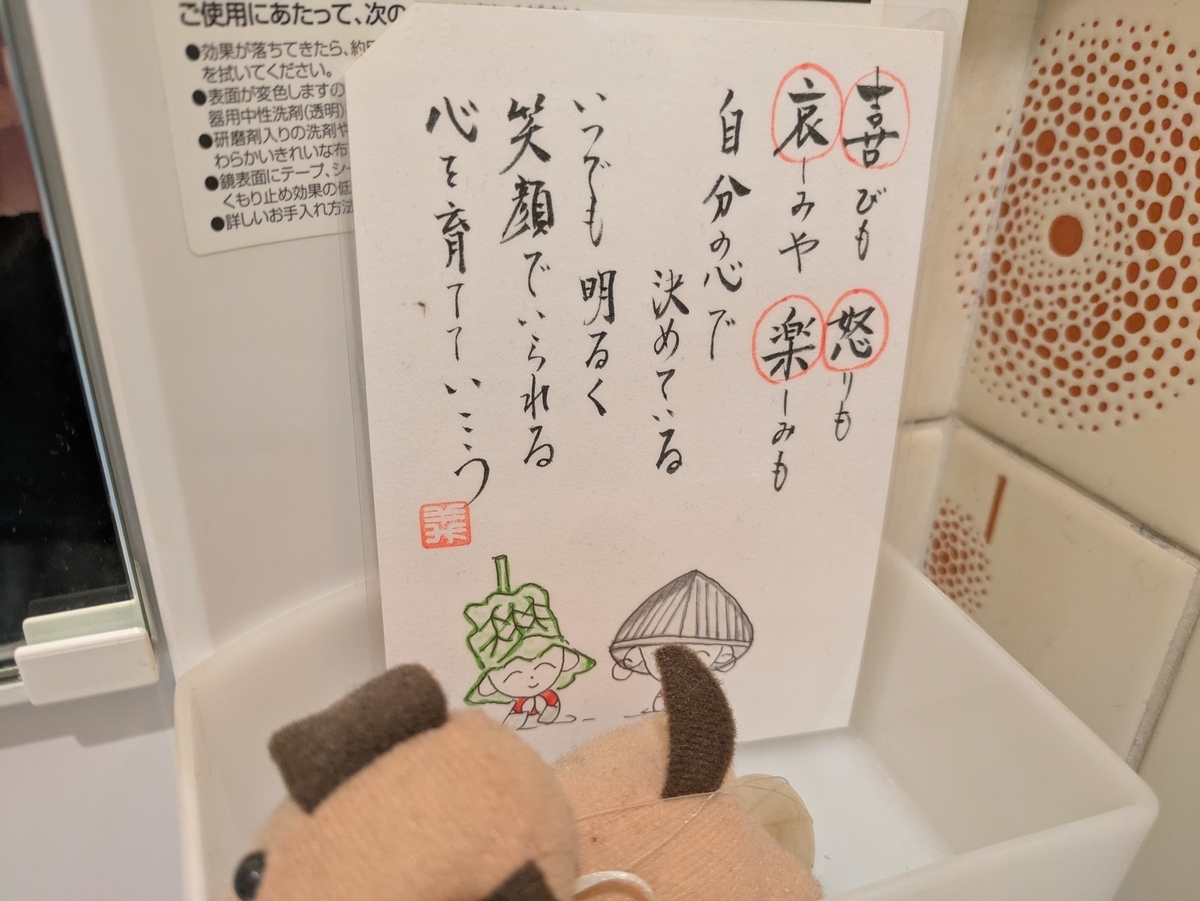 喜びも 怒りも
哀しみや 楽しみも
自分の心で
決めている
いつでも 明るく
笑顔でいられる
心を育てていこう
ご使用にあたって、次の
●効果が落ちてきたら、約
を拭いてください。
●表面が変色しますの
器用中性洗剤(透明)
●研磨剤入りの洗剤や
わらかいきれいな布
●鏡表面にテープ、シー
くもり止め効果の低
●詳しいお手入れ方法